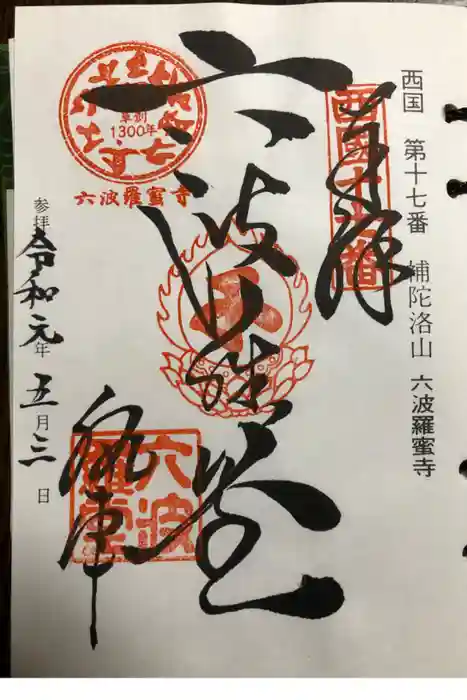 西国 第十七番 補陀洛山 六波羅蜜寺
奉拝
西国十七番
六波羅堂
草創
1300年
六波羅蜜寺
六波
羅堂
執事
参拝 令和元年 五月三日